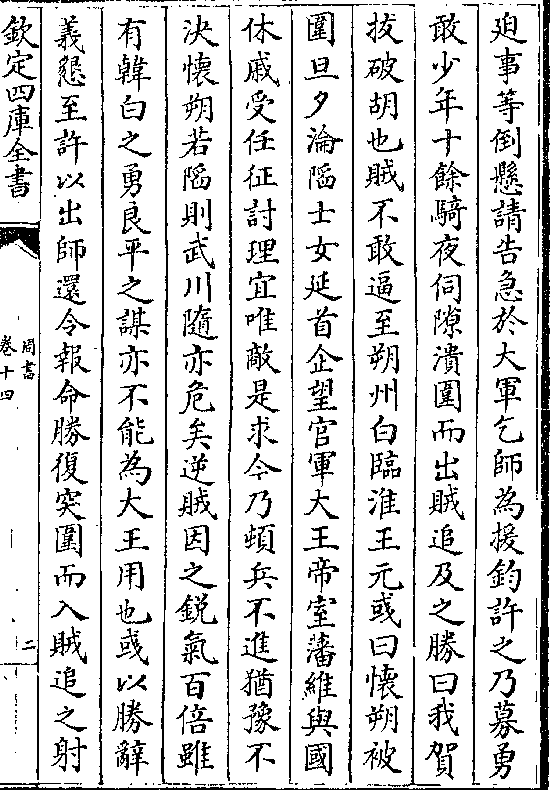 迫事等倒懸請告急於大軍乞師為援鈞許之乃募勇
敢少年十餘騎夜伺隙潰圍而出賊追及之勝曰我賀
拔破胡也賊不敢逼至朔州白臨淮王元彧曰懷朔被
圍旦夕淪陷士女延首企望官軍大王帝室藩維與國
休戚受任征討理宜唯敵是求今乃頓兵不進猶豫不
決懷朔若陷則武川隨亦危矣逆賊因之銳氣百倍雖
有韓白之勇良平之謀亦不能為大王用也彧以勝辭
義懇至許以出師還令報命勝復突圍而入賊追之射
欽定四庫全書
周書
卷十四
二